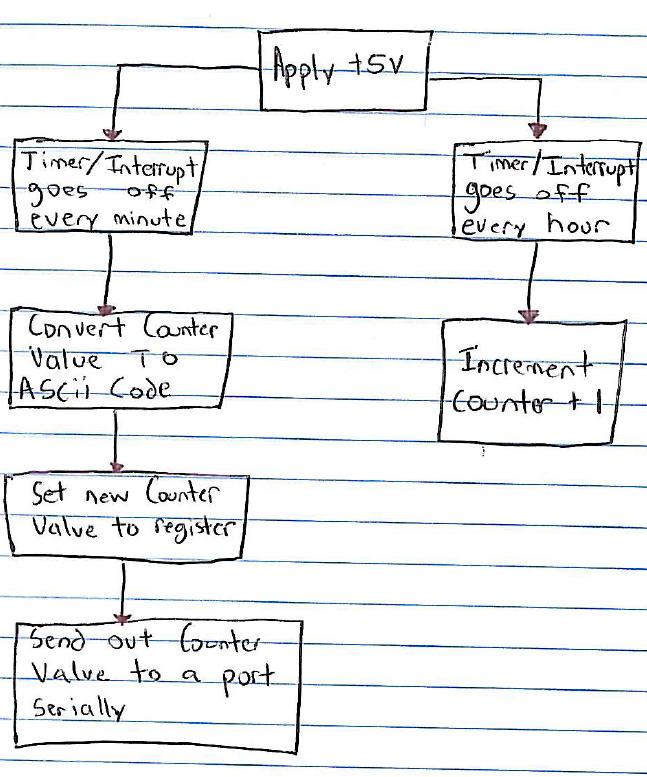 Apply +5V
Timer/Interrupt
goes off
every minute
Timer/Interrupt
goes off
every hour
Convert Counter
Value To
ASCii Code
Increment
Counter + 1
Set new Counter
Value to register
Send out Counter
Value to a port
Serially